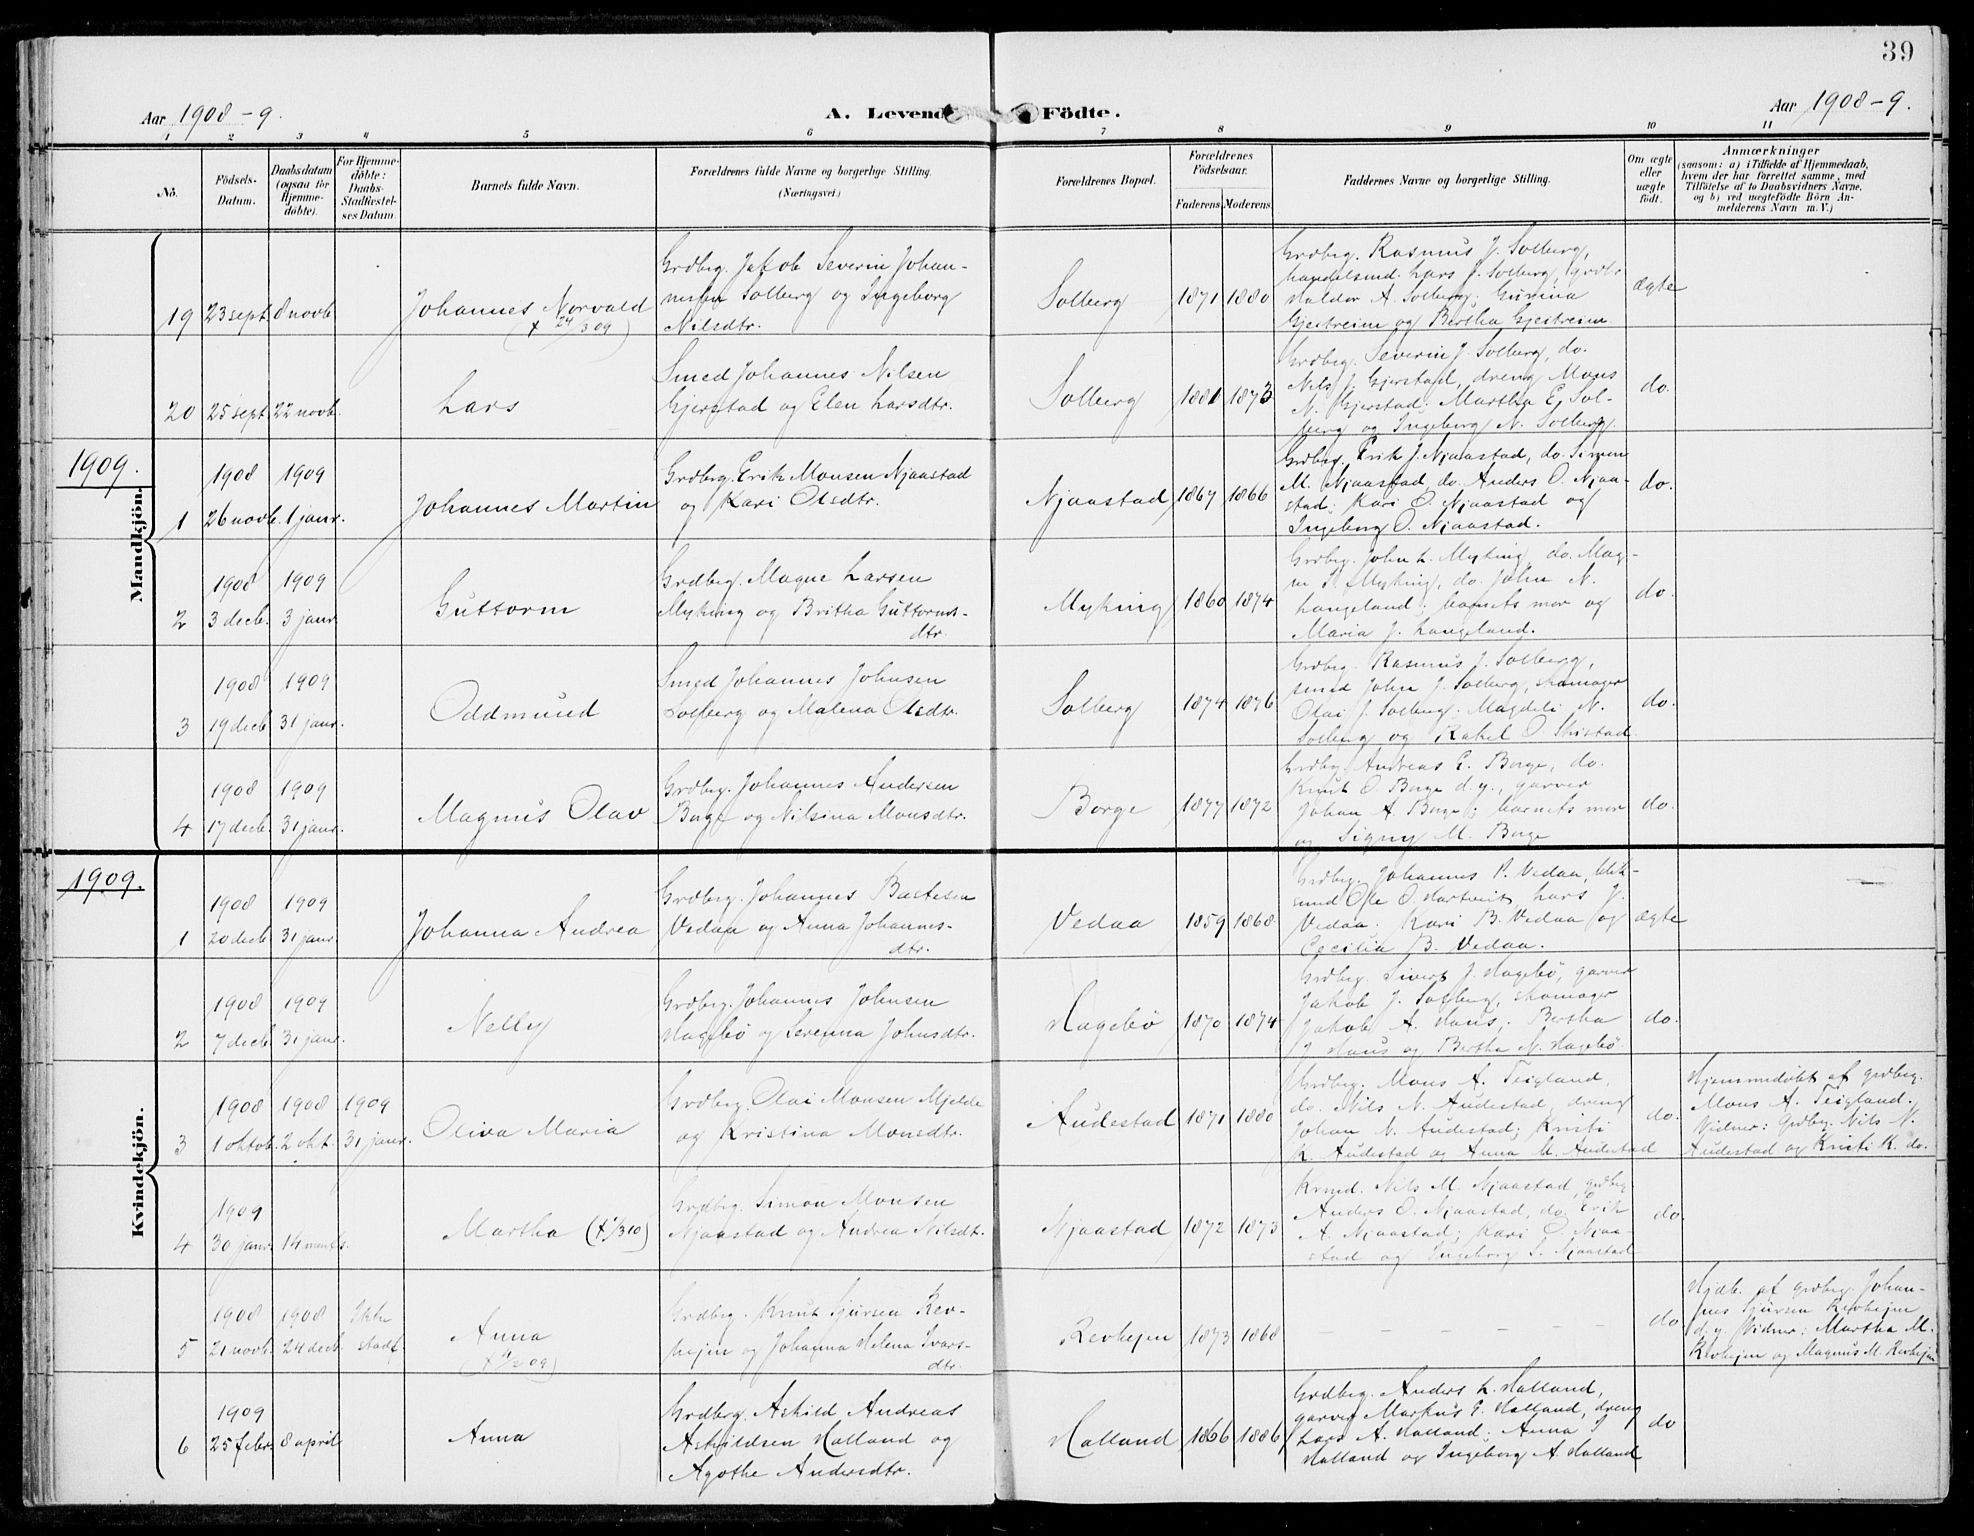 39
Aar 1908-9.
A. Levende Födte.
Aar 1908-9.
1 2 3 4 5 6 7 8 9 10 11
No.
Födsels-
Datum.
Daabsdatum
(ogsaa for
Hjemme-
døbte).
For Hjemme-
døbte:
Daabs-
Stadfæstel-
ses Datum.
Barnets fulde Navn.
Forældrenes fulde Navne og borgerlige Stilling.
(Næringsvei.)
Forældrenes Bopæl.
Forældrenes
Födselsaar.
Faderens Moderens
Faddernes Navne og borgerlige Stilling.
Om ægte
eller
uægte
født.
Anmærkninger
(saasom: a) i Tilfælde af Hjemmedaab,
hvem der har forrettet samme, med
Tilföielse af to Daabsvidners Navne,
og b) ved uægtefödte Börn An-
melderens Navn m. V.)
Mandkjön.
19
23 sept.
8 novb.
Johannes Norvald
(† 24/3 09)
Grdbrg. Jakob Severin Johan-
nesen Solberg og Ingeborg
Nilsdtr.
Solberg
1871
1880
Grdbrg. Rasmus J. Solberg,
handelsmd. Lars J. Solberg, grdbr.
Haldor A. Solberg; Gurina
Gjestreim og Bertha Gjestreim.
ægte
20
25 sept.
22 novb.
Lars
Smed Johannes Nilsen
Gjerstad og Elen Larsdtr.
Solberg
1881
1873
Grdbrg. Severin J. Solberg, do.
Nils J. Gjerstad, dreng Mons
N. Gjerstad; Martha E. Sol-
berg og Ingeborg N. Solberg.
do.
1909.
1
1908
26 novb.
1909
1 janr.
Johannes Martin
Grdbrg. Erik Monsen Njaastad
og Kari Olsdtr.
Njaastad
1867
1866
Grdbrg. Erik J. Njaastad, do. Simon
M. Njaastad, do. Anders O. Njaa-
stad; Kari O. Njaastad og
Ingeborg O. Njaastad.
do.
2
1908
3 decb.
1909
3 janr.
Guttorm
Grdbrg. Magne Larsen
Myking og Britha Guttorms-
dtr.
Myking
1860
1874
Grdbrg. John L. Myking, do. Mag-
ne J. Myking, do. John N.
Langeland; barnets mor og
Maria J. Langeland.
do.
3
1908
19 decb.
1909
31 janr.
Oddmund
Smed Johannes Johnsen
Solberg og Malena Olsdtr.
Solberg
1874
1876
Grdbrg. Rasmus J. Solberg,
smed John J. Solberg, skomager
Olai J. Solberg; Magdeli N.
Solberg og Rakel O.
do.
4
1908
17 decb.
1909
31 janr.
Magnus Olav
Grdbrg. Johannes Andersen
Borge og Nilsina Monsdtr.
Borge
1877
1872
Grdbrg. Andreas E. Borge, do.
Knut O. Borge d.y., garver
Johan A. Borge; barnets mor
og Signy M. Borge
do.
1909.
Kvindekjön.
1
1908
20 decb.
1909
31 janr.
Johanna Andrea
Grdbrg. Johannes Baatesen
Vedaa og Anna Johannes-
dtr.
Vedaa
1859
1868
Grdbrg. Johannes P. Vedaa, blik-
smd Ole O. Hartveit Lars J.
Vedaa; Kari B. Vedaa og
Cecilia B. Vedaa.
ægte
2
1908
7 decb.
1909
31 janr.
Nelly
Grdbrg. Johannes Johnsen
Hagebö og Serenna Johnsdtr.
Hagebö
1870
1874
Grdbrg. Sivert J. Hagebö, garver
Jakob J. Solberg, skomager
Jakob A. Haus; Bertha
J. Haus og Bertha N. Hagebö
do.
3
1908
1 oktob.
1908
2 okt.
1909
31 janr.
Oliva Maria
Grdbrg. Olai Monsen Mjelde
og Kristina Monsdtr.
Audestad
1871
1880
Grdbrg. Mons A. Teigland,
do. Nils N. Audestad, dreng
Johan N. Audestad; Kristi
K. Audestad og Anna M. Audestad
do.
Hjemmedöbt af grdbrg.
Mons A. Teigland.
Vidner: Grdbrg. Nils N.
Audestad og Kristi K. do.
4
1909
30 janr.
14 marts
Martha († 1/3 10)
Grdbrg. Simon Monsen
Njaastad og Andrea Nilsdt.
Njaastad
1872
1873
Krmd. Nils M. Njaastad, grdbrg
Anders O. Njaastad, do. Erik
A. Njaastad; Kari O. Njaa-
stad og Ingeborg S. Njaastad
do.
5
1908
21 novb.
1908
24 decb.
Ikke
stadf.
Anna
Grdbrg. Knut Sjursen Rev-
hejen og Johanna Helena Ivars-
dtr.
Revhejen
1873
1868
– – – – –
do
Hjdb. af grdbrg. Johan-
nes Sjursen Revhejen
d.y. Vidner: Martha M.
Revhejen og Magnus M. Revhejen
6
1909
25 febr.
8 april
Anna
Grdbrg. Askild Andreas
Askildsen Halland og
Agothe Andersdtr.
Halland
1866
1886
Grdbrg. Anders L. Halland,
garver Markus E. Halland, dreng
Lars A. Halland; Anna I
Halland og Ingeborg A. Halland
do